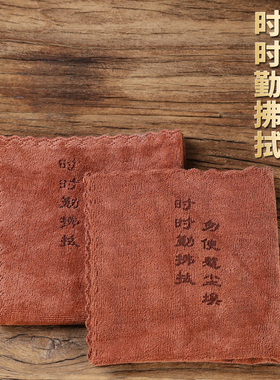 时时勤拂拭
时时勤拂拭
时时勤拂拭
勿使惹尘埃